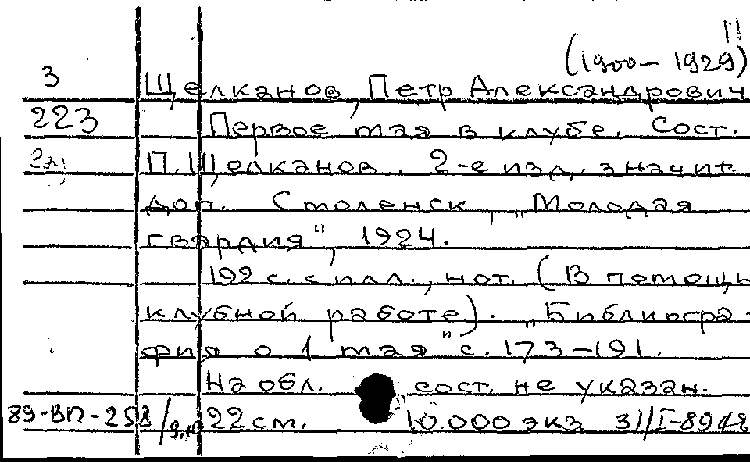 (1900-1929)
3 Щелканов, Петр Александрович
223 Первое мая в клубе. Сост.
П. Щелканов. 2-е изд., значит.
доп. Смоленск, "Молодая
гвардия", 1924.
192 с. с илл., нот. (В помощь
клубной работе). "Библиогра-
фия о 1 мая" с. 173-191.
На обл. сост. не указан.
89-ВП-253 22 см. 10.000 экз.